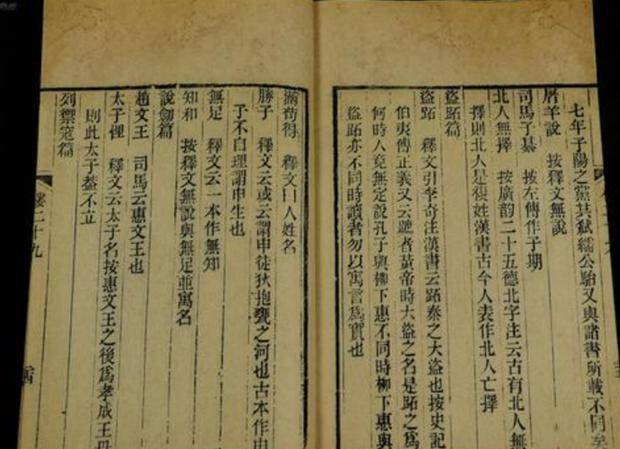 七年子陽之黨其弑繻公駘又與諸書所載不同矣
屠羊說　按釋文無說
司馬子綦　按左傳作子期
北人無擇　按廣韻二十五德北字注云古有北人無
擇則北人是複姓漢書古今人表作北人亡擇
盜跖篇
盜跖　釋文引李奇注漢書云跖秦之大盜也按史記
伯夷傳正義又云蹠者黃帝時大盜之名是跖之爲
何時人竟無定說孔子與柳下惠不同時柳下惠與
盜跖亦不同時讀者勿以寓言爲實也
滿苟得　釋文曰人姓名
勝子　釋文云或云謂申徒狄抱甕之河也古本作申
子不自理謂申生也
無足　釋文云一本作無知
知和　按釋文無說與無足並寓名
說劍篇
趙文王　司馬云惠文王也
太子悝　釋文云太子名按惠文王之後爲孝成王丹
則此太子葢不立
列禦寇篇
卷二十九